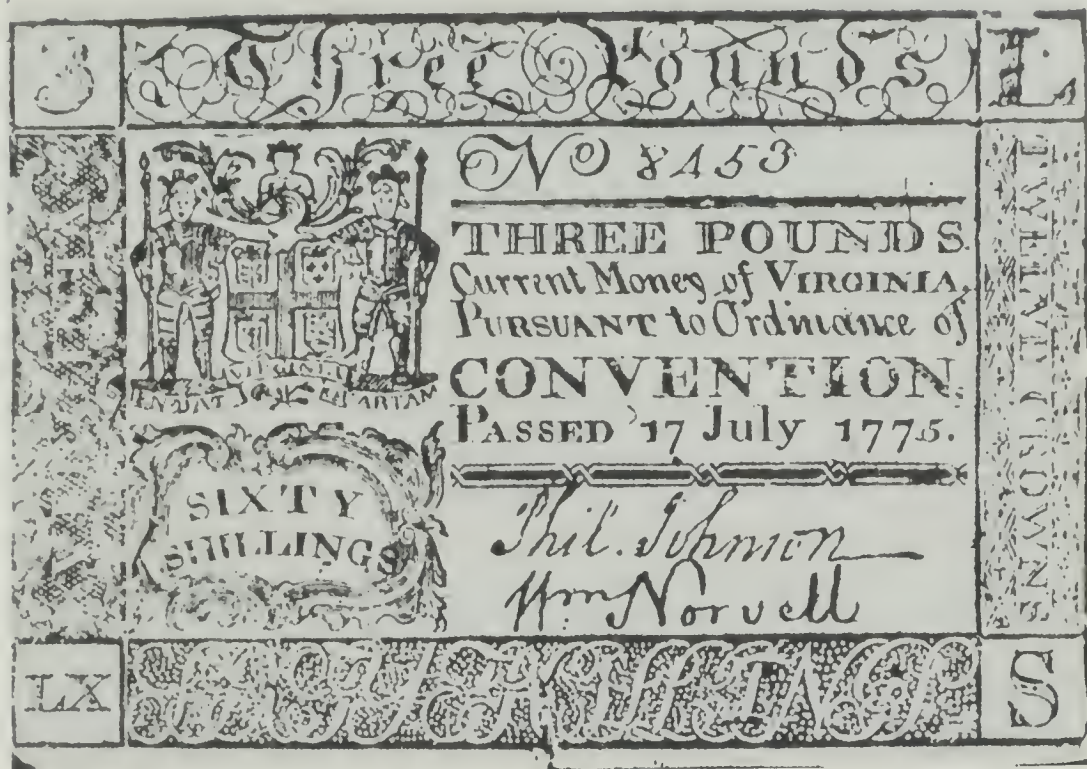 3 Three Pounds L
No 8453
THREE POUNDS
Current Money of VIRGINIA.
PURSUANT to Ordinance of
CONVENTION.
PASSED 17 July 1775.
VIRGINIA
EN DAT QUARTAM
SIXTY
SHILLINGS
Phil. Johnson
Wm Norvell
TWELVE CROWNS
LX S